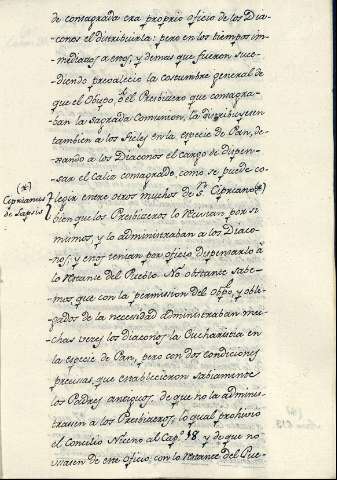 de consagrada era proprio oficio de los Dia-
conos el distribuirla: pero en los tiempos in-
mediatos a enos, y demas que fueron suce-
diendo prevalecio la costumbre general de
que el Obispo, ò el Presbitero que consagra-
ban la sagrada Comunion, la distribuyesen
tambien a los Fieles en la especie de Pan, de-
xando a los Diaconos el cargo de dispen-
sar el Caliz consagrado, como se puede co-
legir entre otros muchos de Sn. Cipriano (*)
(*)
Cyprianus
de Lapsis
bien que los Presbiteros lo tomaban por si
mismos y lo administraban a los Diaco-
nos; y enos tenian por oficio dispensarlo à
lo restante del Pueblo. No obstante sabe-
mos, que con la permission del Obpo, y obli-
gados de la necesidad administraban mu-
chas veces los diaconos la Eucharistia en
la especie de Pan, pero con dos condiciones
precisas, que establecieron sabiamente
los Padres antiguos, de que no la adminis-
trasen a los Presbiteros, lo qual prohivio
el Concilio Niceno al Cap.º 18, y de que no
usasen de este oficio, con lo restante del Pue-